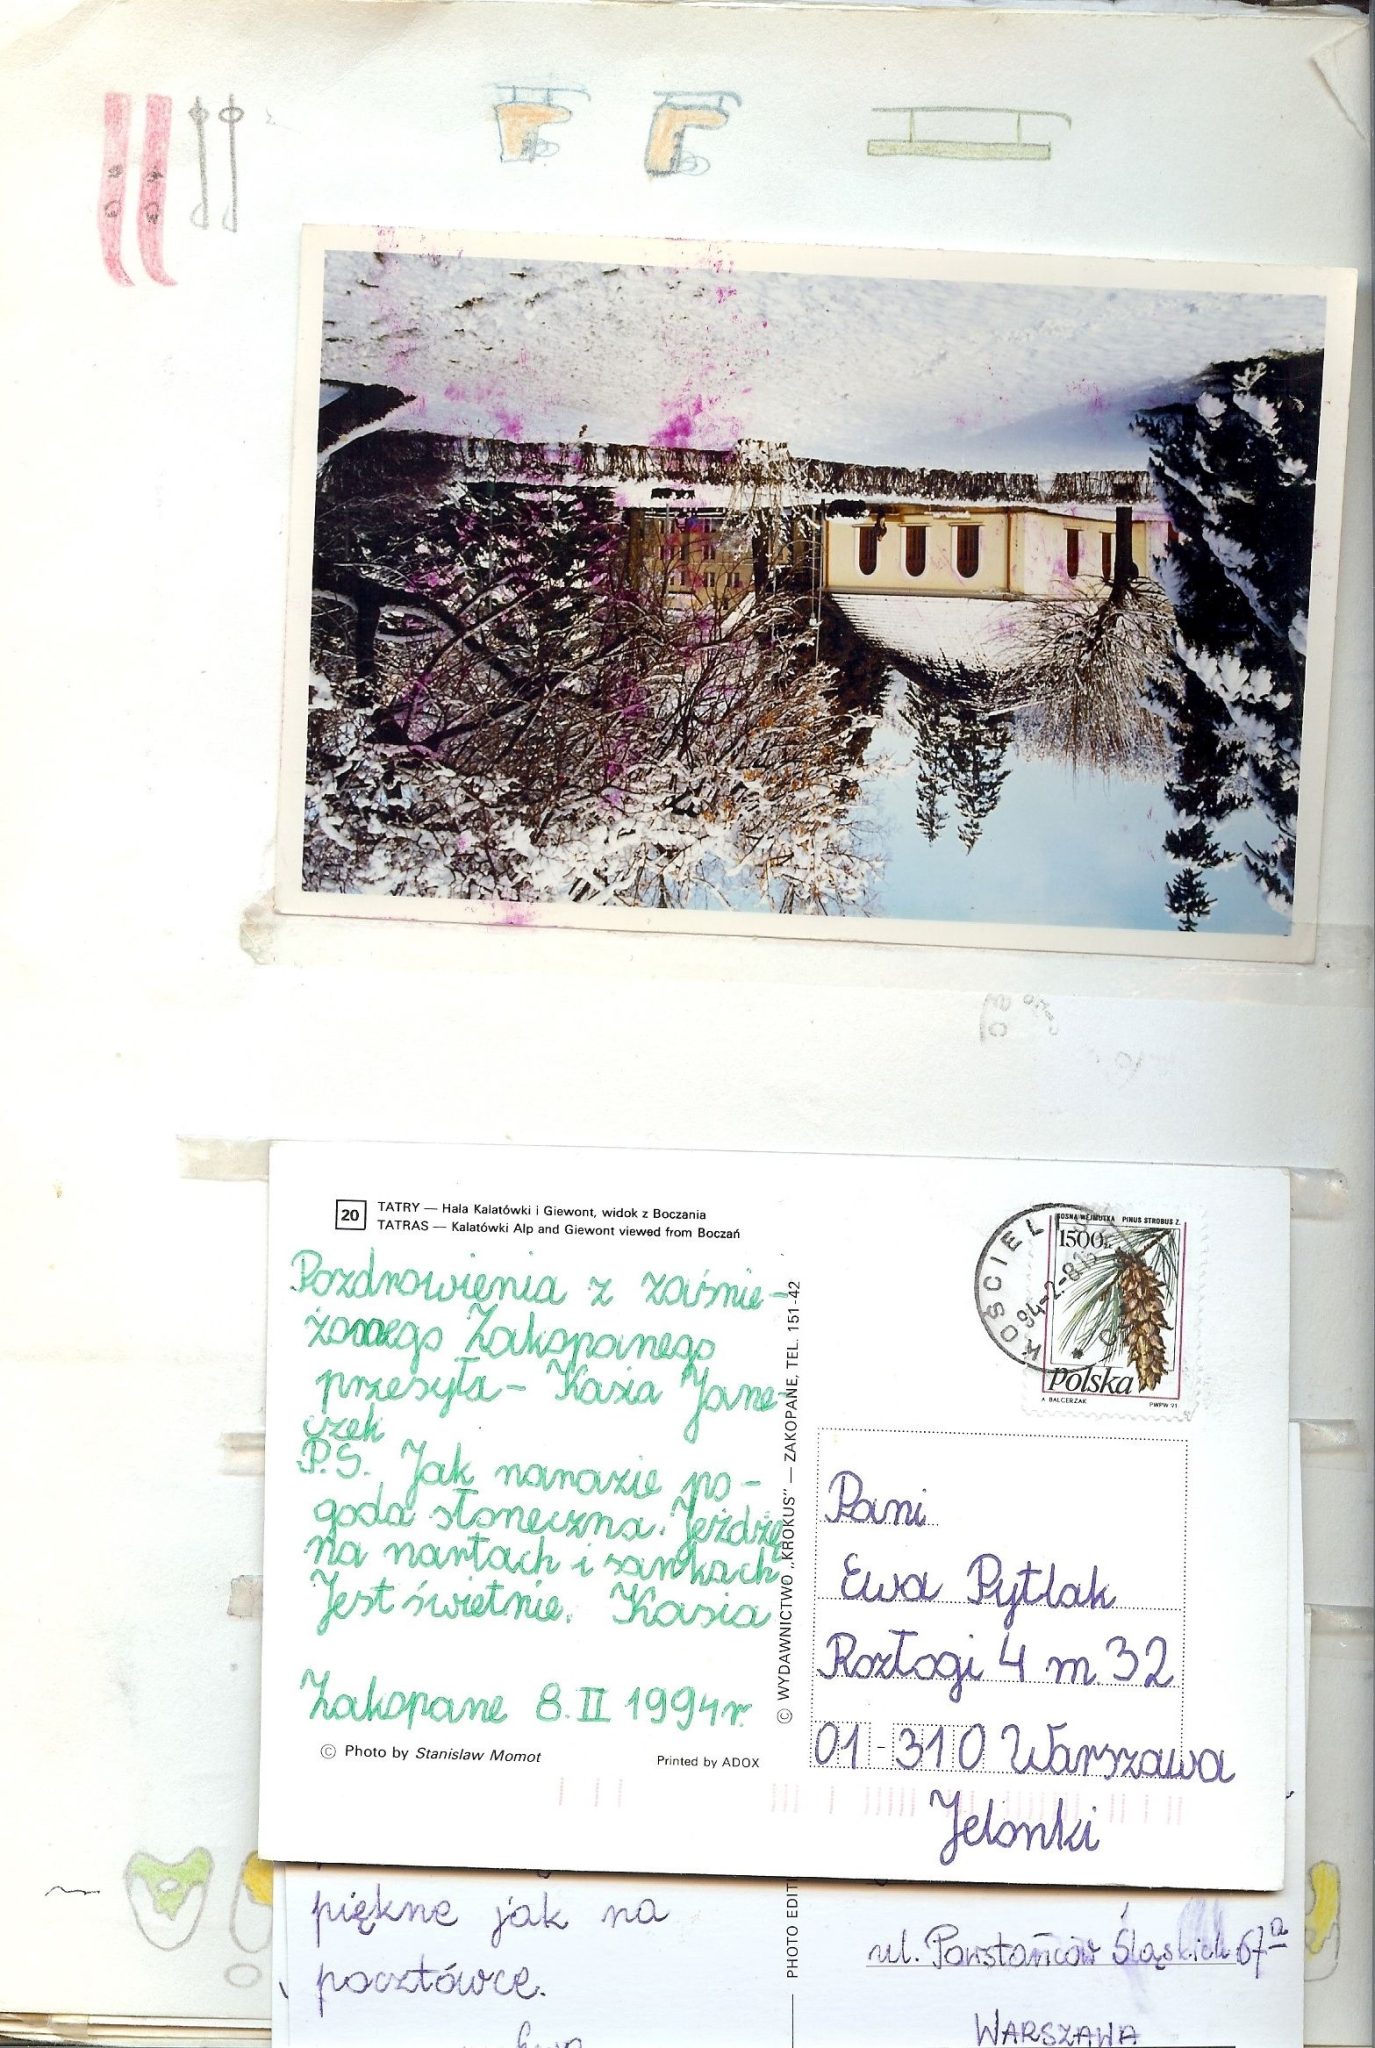 20
TATRY — Hala Kalatówki i Giewont, widok z Boczania
TATRAS — Kalatówki Alp and Giewont viewed from Boczań
Pozdrowienia z zaśnie-
żonego Zakopanego
przesyła - Kasia Jane-
czek
P.S. Jak narazie po-
goda słoneczna. Jeżdżę
na nartach i sankach
Jest świetnie. Kasia
Zakopane 8.II 1994r.
© Photo by Stanisław Momot
Printed by ADOX
© WYDAWNICTWO „KROKUS" — ZAKOPANE, TEL. 151-42
KOŚCIEL
94-2-8
SOSNA WEJMUTKA PINUS STROBUS Z.
1500zł
Polska
A BALCERZAK
PWPW 91
Pani
Ewa Pytlak
Rozłogi 4 m. 32
01-310 Warszawa
Jelonki
piękne jak na
pocztówce.
PHOTO EDIT
ul. Powstańców Śląskich 67a
WARSZAWA